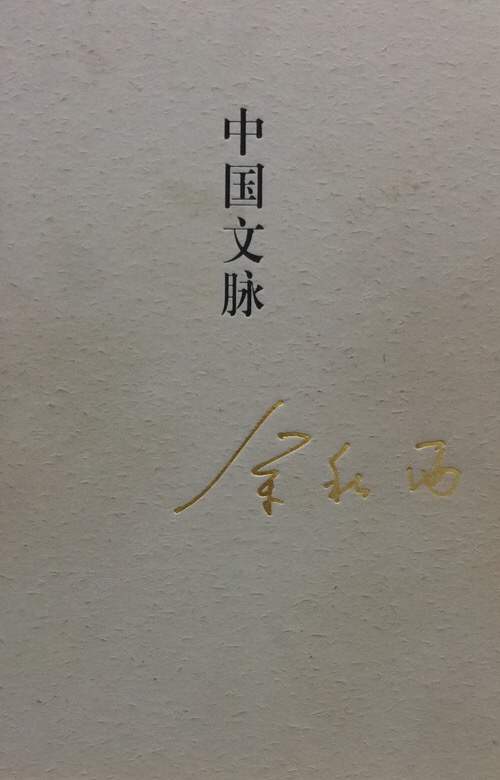 中国文脉
余秋雨